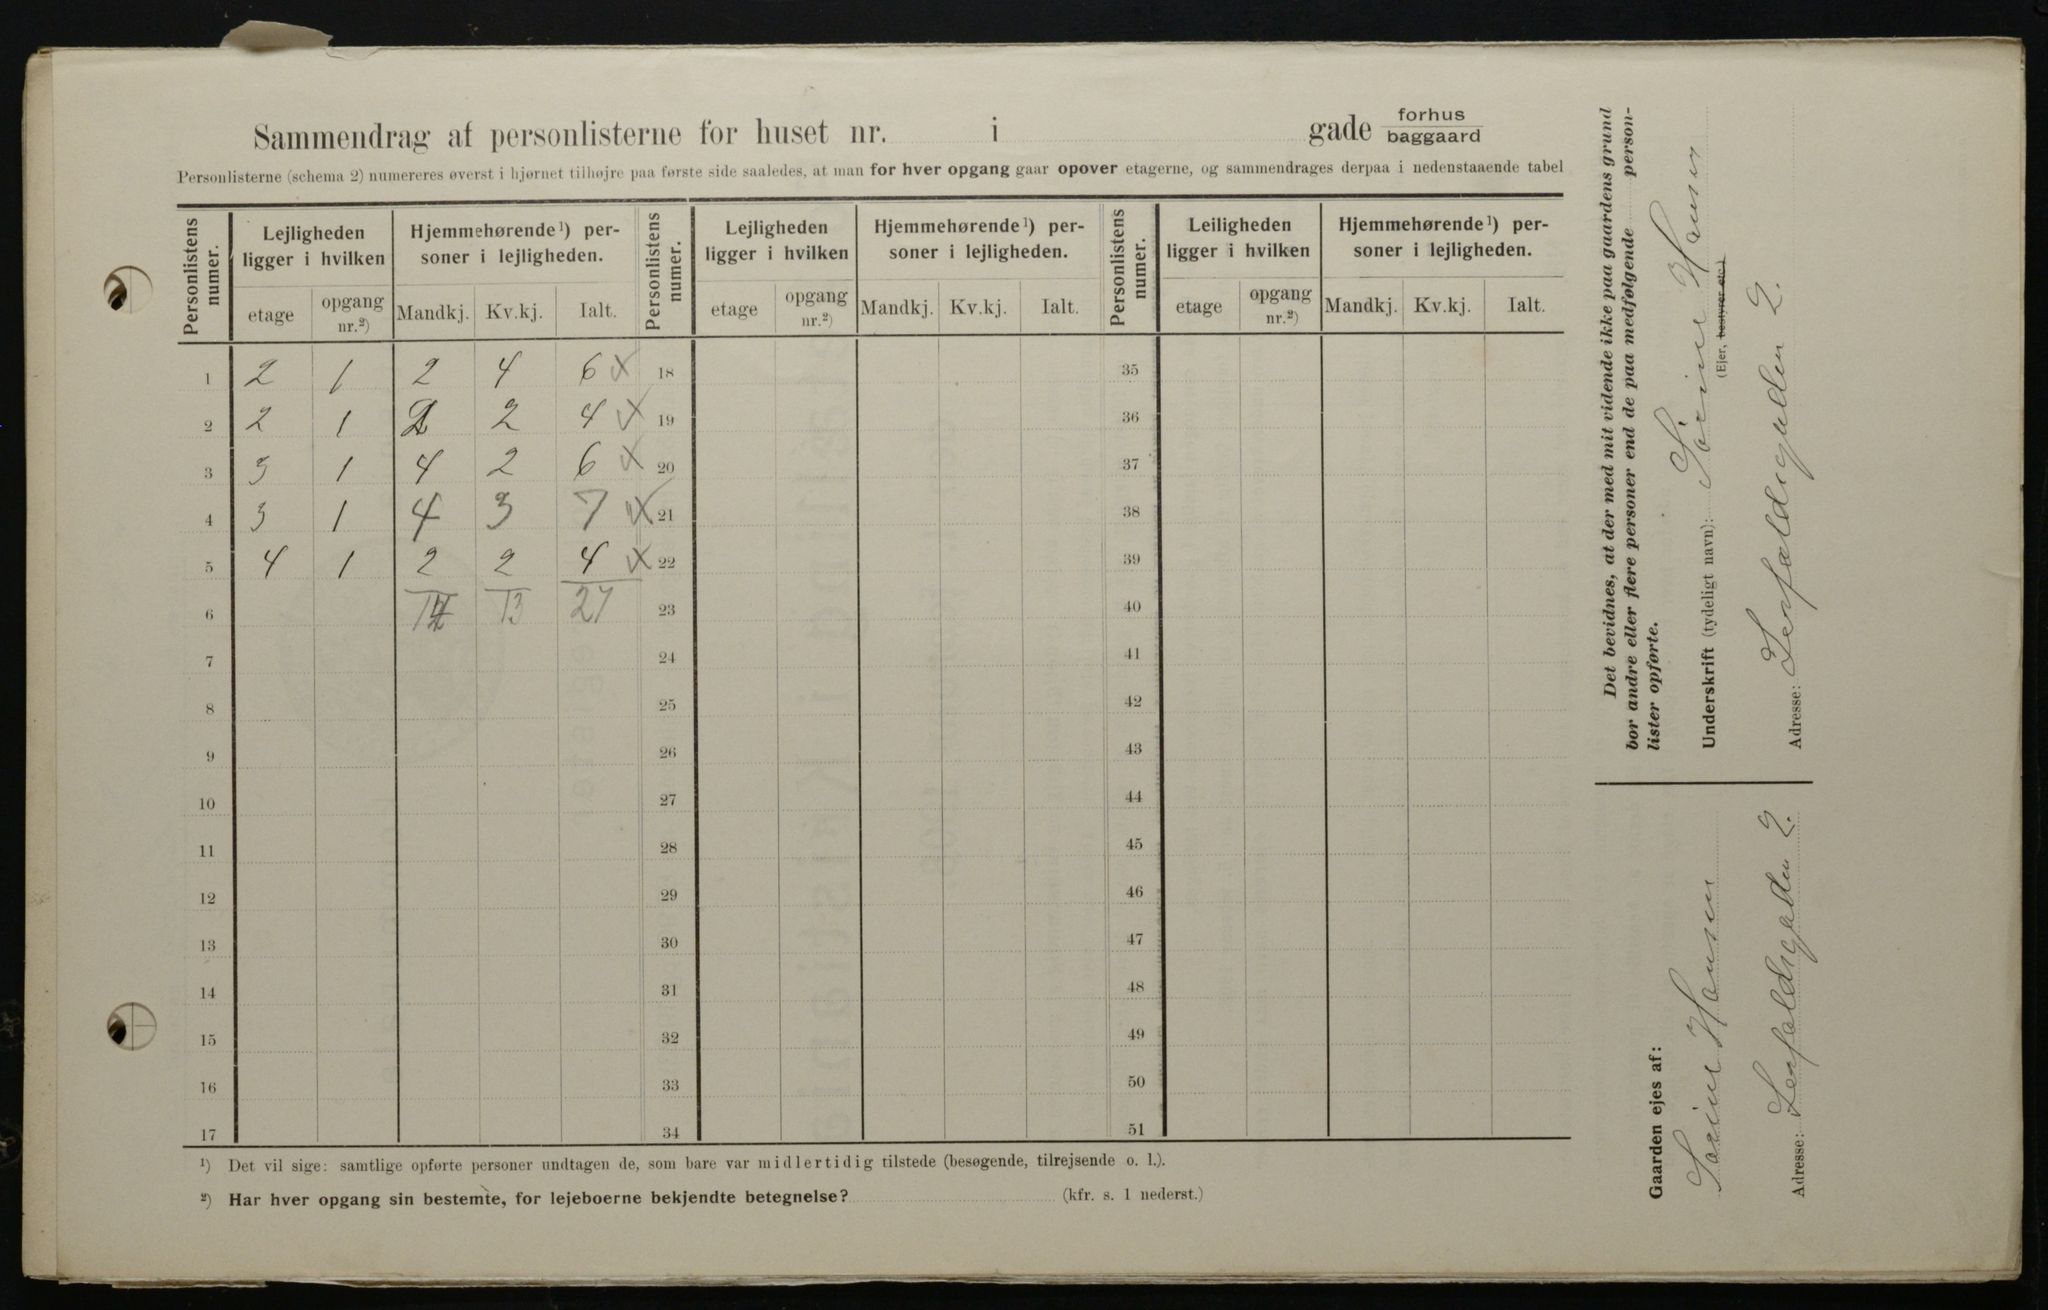 Sammendrag af personlisterne for huset nr. i gade forhus baggaard
Personlisterne (schema 2) numereres øverst i hjørnet tilhøjre paa første side saaledes, at man for hver opgang gaar opover etagerne, og sammendrages derpaa i nedenstaaende tabel
Personlistens numer. Lejligheden ligger i hvilken Hjemmehørende¹) personer i lejligheden. Personlistens numer. Lejligheden ligger i hvilken Hjemmehørende¹) personer i lejligheden. Personlistens numer. Leiligheden ligger i hvilken Hjemmehørende¹) personer i lejligheden.
etage opgang nr.²) Mandkj. Kv.kj. Ialt. etage opgang nr.²) Mandkj. Kv.kj. Ialt. etage opgang nr.²) Mandkj. Kv.kj. Ialt.
1 2 1 2 4 6 x 18 35
2 2 1 2 2 4 x 19 36
3 3 1 4 2 6 x 20 37
4 3 1 4 3 7 x 21 38
5 4 1 2 2 4 x 22 39
6 14 13 27 23 40
7 24 41
8 25 42
9 26 43
10 27 44
11 28 45
12 29 46
13 30 47
14 31 48
15 32 49
16 33 50
17 34 51
¹) Det vil sige: samtlige opførte personer undtagen de, som bare var midlertidig tilstede (besøgende, tilrejsende o. l.).
²) Har hver opgang sin bestemte, for lejeboerne bekjendte betegnelse? (kfr. s. 1 nederst.)
Det bevidnes, at der med mit vidende ikke paa gaardens grund
bor andre eller flere personer end de paa medfølgende person-
lister opførte.
Underskrift (tydeligt navn): Sørine Hansen
(Ejer, bestyrer etc.)
Adresse: 2.
Gaarden ejes af:
Sørine Hansen
Adresse: 2.